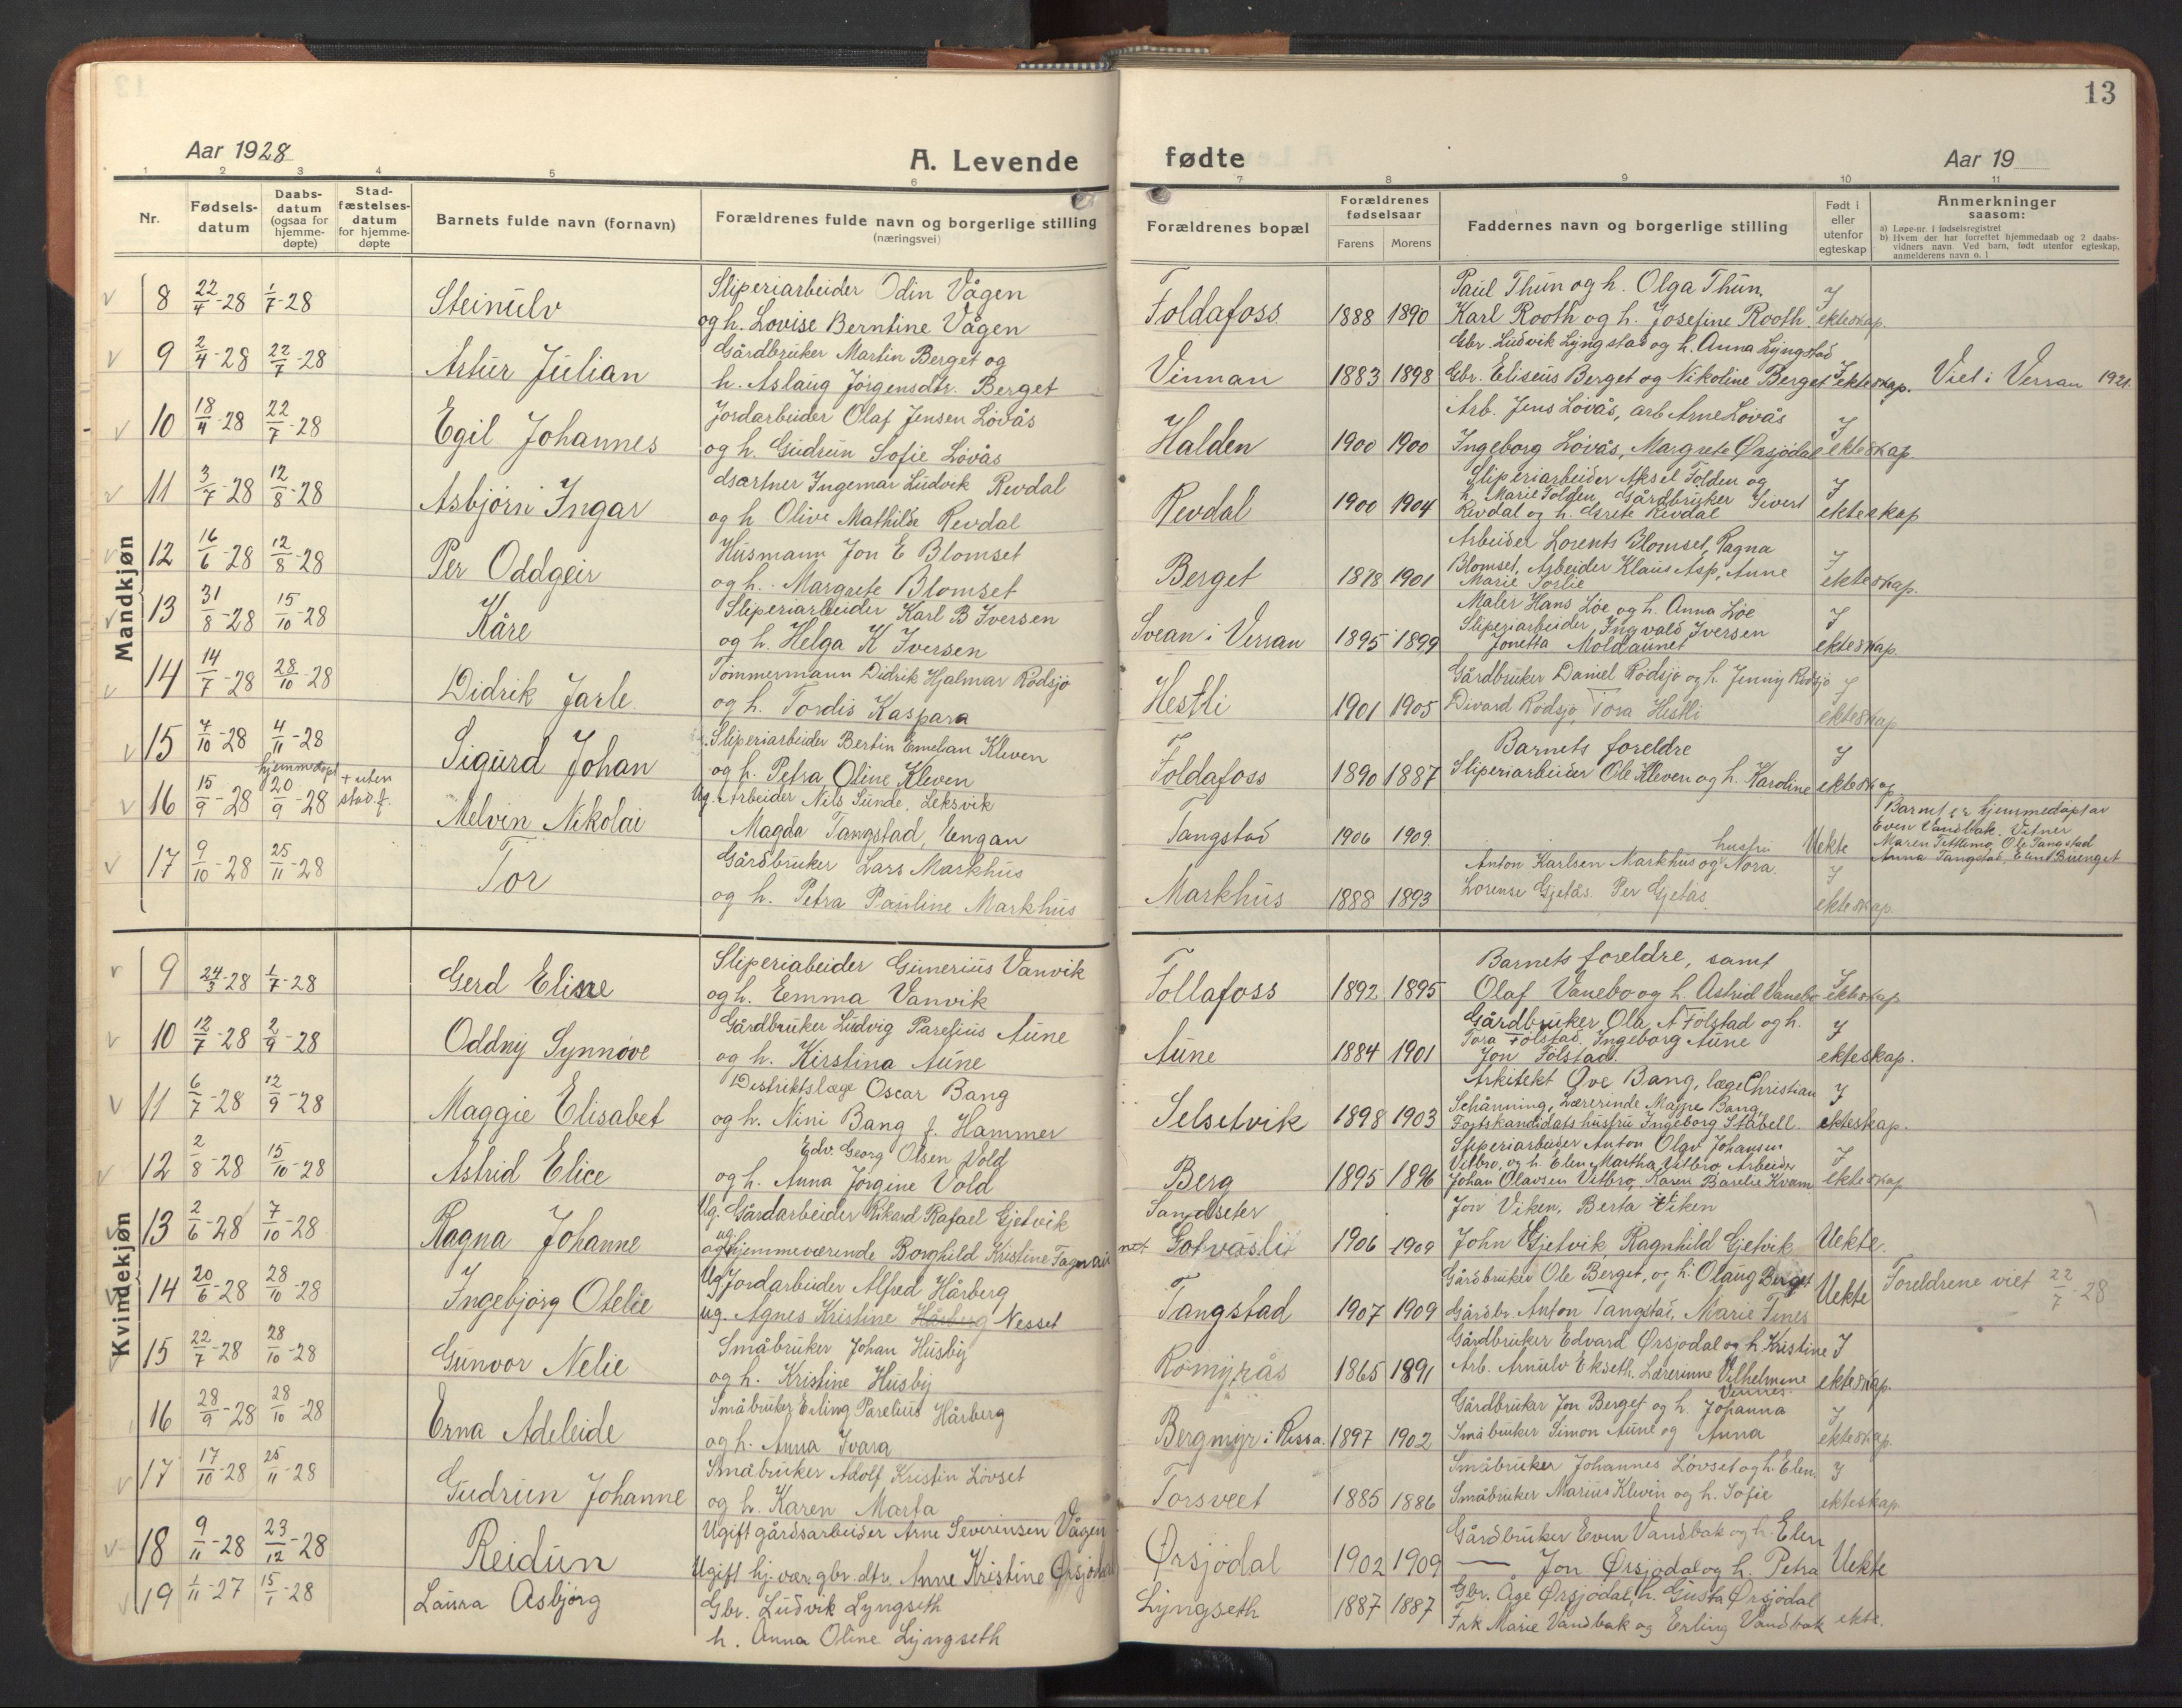 13
Aar 1928
A. Levende
fødte
Aar 19
1 2 3 4 5 6 7 8 9 10 11
Nr.
Fødsels-
datum
Daabs-
datum
(ogsaa for
hjemme-
døpte)
Stad-
fæstelses-
datum
for hjemme-
døpte
Barnets fulde navn (fornavn)
Forældrenes fulde navn og borgerlige stilling
(næringsvei)
Forældrenes bopæl
Forældrenes
fødselsaar
Farens Morens
Faddernes navn og borgerlige stilling
Født i
eller
utenfor
egteskap
Anmerkninger
saasom:
a) Løpe-nr. i fødselsregistret
b) Hvem der har forrettet hjemmedaab og 2 daabs-
vidners navn. Ved barn, født utenfor egteskap,
anmelderens navn o. l
Mandkjøn
8 22/4-28 1/7-28 Steinulv
Sliperiarbeider Odin Vågen
og h. Lovise Berntine Vågen
Foldafoss 1888 1890
Paul Thun og h. Olga Thun.
Karl Rooth og h. Josefine Rooth
I
ekteskap.
9 2/4-28 22/7-28 Artur Julian
Gårdbruker Martin Berget og
h. Aslaug Jørgensdtr. Berget
Vinnan 1883 1898
Gbr. Ludvik Lyngstad og h. Anna Lyngstad
Gbr. Eliseus Berget og Nikoline Berget
I
ekteskap.
Viet i Verran 1921.
10 18/4-28 22/7-28 Egil Johannes
Jordarbeider Olaf Jensen Løvås
og h. Gudrun Sofie Løvås
Halden 1900 1900
Arb. Jens Løvås, arb Arne Løvås
Ingeborg Løvås, Margrete Ørsjødal
I
ekteskap
11 3/7-28 12/8-28 Asbjørn Ingar
Gartner Ingemar Ludvik Revdal
og h Olive Mathilde Revdal
Revdal 1900 1904
Sliperiarbeider Aksel Folden og
h. Marie Folden, Gårdbruker Sivert
Revdal og h. Grete Revdal
I
ekteskap
12 16/6-28 12/8-28 Per Oddgeir
Husmann Jon E Blomset
og h. Margrete Blomset
Berget 1878 1901
Arbeider Lorents Blomset, Ragna
Blomset, Arbeider Klaus Asp, Anne
Marie Sorlie
I
ekteskap.
13 31/8-28 15/10-28 Kåre
Sliperiarbeider Karl B Iversen
og h. Helga K Iversen
Svean i Verran 1895 1899
Maler Hans Løe og h. Anna Løe
Sliperiarbeider Ingvald Iversen
Jonetta Moldaunet
I
ekteskap.
14 14/7-28 28/10-28 Didrik Jarle.
Tømmermann Didrik Hjalmar Rødsjø
og h. Tordis Kaspara
Hestli 1901 1905
Gårdbruker Daniel Rødsjø og h. Jenny Rødsjø
Divard Rødsjø, Tora Hestli
I
ekteskap
15 7/10-28 4/11-28 Sigurd Johan
Sliperiarbeider Bertin Emelian Kleven
og h. Petra Oline Kleven
Foldafoss 1890 1887
Barnets foreldre
Sliperiarbeider Ole Kleven og h. Karoline
I
ekteskap
16 15/9-28 hjemmedøpt 20/9-28 + uten stad.f. Melvin Nikolai
Ug. Arbeider Nils Sunde, Leksvik
Magda Tangstad, Engan
Tangstad 1906 1909.
Uekte
Barnet er hjemmedøpt av
Even Vandbak. Vitner
Maren Tettlimo, Ole Tangstad
Anna Tangstad,
17 9/10-28 25/11-28 Tor
Gårdbruker Lars Markhus
og h. Petra Pauline Markhus
Markhus 1888 1893
hustru
Anton Karlsen Markhus og Nora.
Lorense Gjetås. Per Gjetås.
I
ekteskap.
Kvindekjøn
9 24/3-28 1/7-28 Gerd Eline
Sliperiabeider Gunerius Vanvik
og h. Emma Vanvik
Follafoss 1892 1895
Barnets foreldre, samt
Olaf Vanebo og h. Astrid Vanebo
I
ekteskap
10 12/7-28 2/9-28 Oddny Synnøve
Gårdbruker Ludvig Parelius Aune
og h. Kirstina Aune
Aune 1884 1901
Gårdbruker Ola A Følstad og h.
Tora Følstad, Ingeborg Aune
Jon Følstad.
I
ekteskap.
11 6/7-28 12/9-28 Maggie Elisabet
Distriktslæge Oscar Bang
og h. Nini Bang f. Hammer
Selsetvik 1898 1903
Arkitekt Ove Bang, læge Christian
Schånning, Lærerinde Bang,
Forstkandidats hustru Ingeborg Stabell.
I
ekteskap.
12 2/8-28 15/10-28 Astrid Elice
Edv. Georg Olsen Vold
og h. Anna Jørgine Vold
Berg 1895 1896
Sliperiarbeider Anton Olav Johansen
Vitbro, og h. Elen Martha Vitbro, Arbeider
Johan Olavsen Vitbro, Karen Barelie Kvam
I
ekteskap
13 2/6-28 7/10-28 Ragna Johanne
Ug. Gårdarbeider Rikard Rafael Gjetvik
og ug. hjemmeværende Borghild Kristine
Sandseter
1906 1909
Jon Viken, Berta Viken
John Gjetvik, Ragnhild Gjetvik
Uekte.
14 20/6-28 28/10-28 Ingebjørg Otelie
Ug Jordarbeider Alfred Hårberg
ug. Agnes Kristine Hårberg Nesset
Tangstad 1907 1909
Gårdbruker Ole Berget, og h. Olaug Berget
Gårdbr. Anton Tangstad, Marie Fines
Uekte
Foreldrene viet 22/7-28
15 22/7-28 28/10-28 Gunvor Nelie
Småbruker Johan Husby
og h. Kristine Husby
Romyrås 1865 1891
Gårdbruker Edvard Ørsjødal og h. Kristine
Arb. Arnulv Ekseth. Lærerinne Vilhelmine
Vennes.
I
ekteskap.
16 28/9-28 28/10-28 Erna Adeleide
Småbruker Erling Parelius Hårberg
og h. Anna Ivara
Bergmyr i Rissa. 1897 1902
Gårdbruker Jon Berget og h. Johanna
Småbruker Simon Aune og Anna
I
ekteskap.
17 17/10-28 25/11-28 Gudrun Johanne
Småbruker Adolf Kristin Løvset
og h. Karen Marta
Torsveet 1885 1886
Småbruker Johannes Løvset og h. Elen.
Småbruker Marius Klevin og h. Sofie
I
ekteskap
18 9/11-28 23/12-28 Reidun
Ugift gårdsarbeider Arne Severinsen Vågen
Ugift hj.vær. gbr. dtr. Anne Kristine Ørsjødal
Ørsjødal 1902 1909
Gårdbruker Even Vandbak og h. Elen
— Jon Ørsjødal og h. Petra
Uekte
19 1/11-27 15/1-28 Laura Asbjørg
Gbr. Ludvik Lyngseth
h. Anna Oline Lyngseth
Lyngseth 1887 1887
Gbr. Åge Ørsjødal, h. Gusta Ørsjødal
Frk Marie Vandbak og Erling Vandbak
ekte.